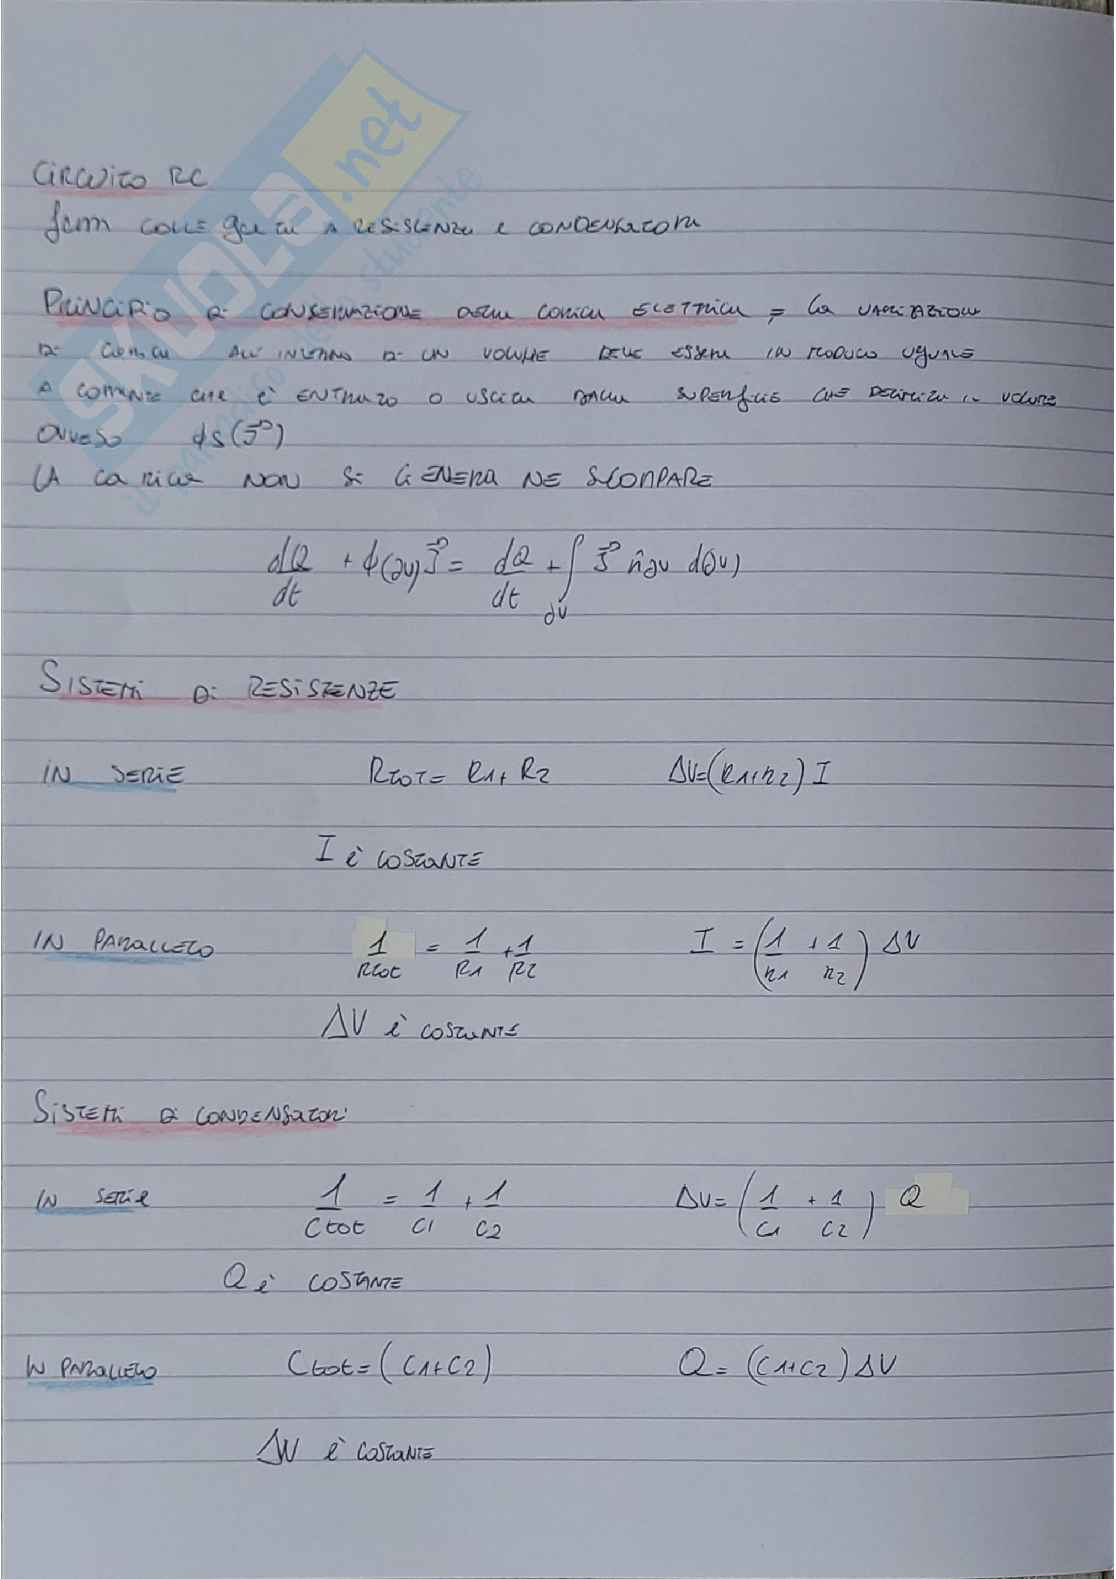 SKUOLA.net
CIRCUITO RC
fem COLLEGATA A RESISTENZA E CONDENSATORE
PRINCIPIO DI CONSERVAZIONE DELLA CARICA ELETTRICA = LA VARIAZIONE
DI CARICA ALL'INTERNO DI UN VOLUME DEVE ESSERE IN MODULO UGUALE
A CORRENTE CHE È ENTRATA O USCITA DALLA SUPERFICIE CHE DELIMITA IL VOLUME
OVVERO ϕS(J⃗)
LA CARICA NON SI GENERA NE SCOMPARE
dQ/dt + ϕ(∂V)J⃗ = dQ/dt + ∫∂V J⃗ n̂∂V d(∂V)
SISTEMI DI RESISTENZE
IN SERIE Rtot = R1+R2 ΔV=(R1+R2) I
I è COSTANTE
IN PARALLELO 1/Rtot = 1/R1 + 1/R2 I = (1/R1 + 1/R2) ΔV
ΔV è COSTANTE
SISTEMI DI CONDENSATORI
IN SERIE 1/Ctot = 1/C1 + 1/C2 ΔV= (1/C1 + 1/C2) Q
Q è COSTANTE
IN PARALLELO Ctot = (C1+C2) Q = (C1+C2) ΔV
ΔV è COSTANTE